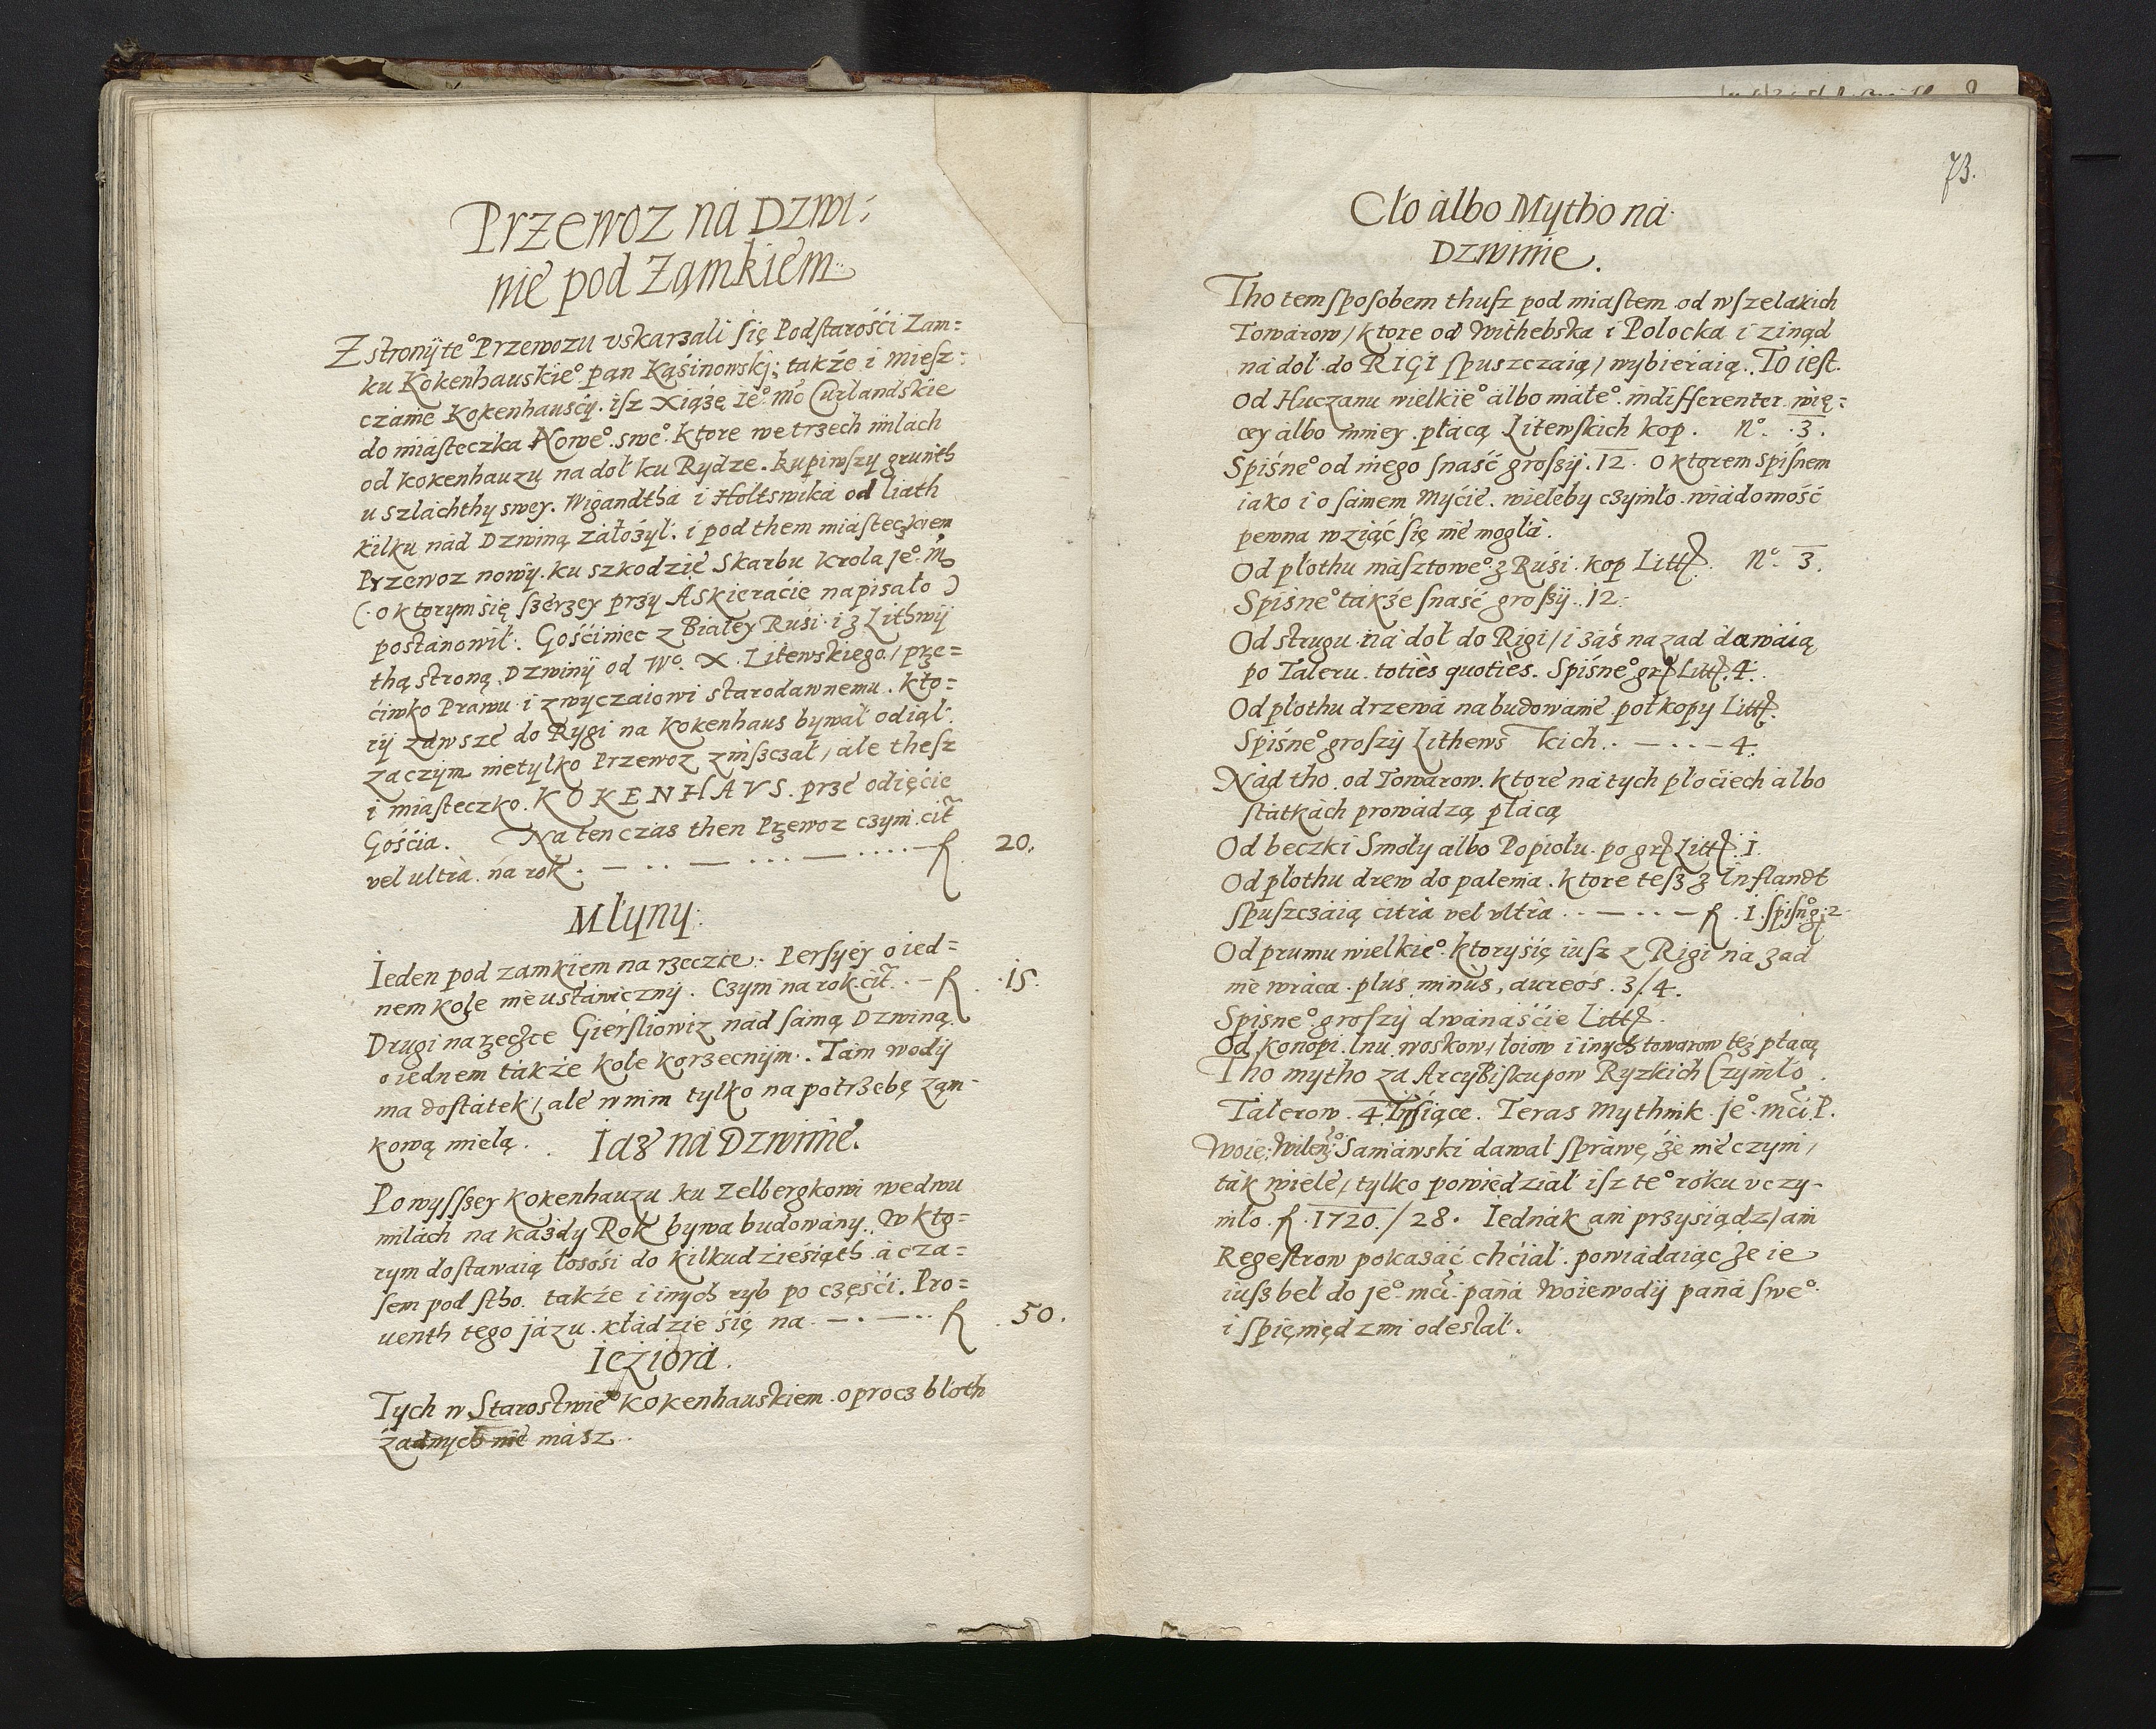 Przewoz na Dzwi:
nie pod Zamkiem
Z stronÿ te° Przewozu vskarzali się Podstarośći Zam=
ku Kokenhauskie° pan Kąśinowskj; także i miesz=
czanie Kokenhausćy. isz Xiążę Ie° mć Curlandskie
do miasteczka Nowe° swe° ktore we trzech milach
od kokenhauzu na doł ku Rydze. kupiwszy grunth
u szlachthy swey. Wigandtha i Holtswika od liath
kilku nád Dzwiną założył. i pod them miasteczkiem
Przewoz nowy. ku szkodzie Skarbu krola Je° M
(. o ktorym się szerzey przy Askieraćie napisało )
postanowił. Gośćiniec z Białey Rusi i z Lithwÿ
thą stroną Dzwinÿ od W° X. Litewskiego / prze=
ćiwko Prawu i zwyczaiowi starodawnemu. kto=
rÿ zawsze do Rygi na Kokenhaus bywał odiął.
zaczym nietylko Przewoz zniszczał / ale thesz
i miasteczko. KOKENHAVS. prze odięćie
Gośćia. Na ten czas then Przewoz czyni cit
vel ultrà. na rok. — .. — ... — .... — f. 20.
Młyny.
Ieden pod zamkiem na rzeczce. Persyey o ied=
nem kole nie ustáwiczny. Czyni na rok. cit. . — f. 15.
Drugi na rzeczce Gierśliowiz nád sámą Dzwiną
o iednem także kole korzecnÿm. Tám wodÿ
ma dostátek / ale w nim tylko na potrzebę zam-
kową mielą. Iaz ná Dzwinie.
Powysszey Kokenhauzu ku Zelbergkowi wedwu
milach na każdy Rok bywa budowány. W kto=
rym dostawaią łosośi do kilkudzieśiąth. á cza=
sem pod stho. także i inych ryb po częśći. Pro=
uenth tego jázu. kładzie się na — . — .. f. 50.
Ieziorá.
Tych w Starostwie Kokenhauskiem. oprocz błoth
żadnych nie mász.
73.
Cło álbo Mytho ná
Dzwinie.
Tho tem sposobem thusz pod miastem od wszelakich
Towárow / ktore od Withebska i Polocka i zinąd
ná doł do RIGI spuszczaią / wybieráią. To iest.
Od Huczanu wielkie° álbo máłe° indifferenter wię=
cey álbo mniey. płácą Litewskich kop. N° 3.
Spiśne° od niego snaść groszÿ. 12. O ktorem Spiśnem
iáko i o sámem Myćie. wieleby czyniło. wiádomość
pewna wziąć się nie mogłá.
Od płothu masztowe° z Ruśi. kop Litt. N° 3.
Spiśne° także snaść groszÿ. 12.
Od strugu ná doł do Rigi / i záś na zad dawáią
po Taleru. toties quoties. Spiśne° gr Litt. 4.
Od płothu drzewá na budowanie połkopy Litt.
Spiśne° groszÿ Lithews kich. . — . . — 4.
Nád tho. od Towárow. ktore ná tych płoćiech álbo
státkách prowádzą płácą
Od beczki Smoły álbo Popiołu. po gr Litt. 1.
Od płothu drew do palenia. ktore tesz z Inflandt
spuszczáią citrà vel vltrà . . — . . — f. 1. spiśn. g 12
Od prumu wielkie° ktory się iusz z Rigi na zad
nie wráca. plus minus, aureos. 3/4.
Spiśne° groszÿ dwánaśćie Litt.
Od konopi. lnu woskow, łoiow i inych towarow też płacą
Tho mytho zá Arcybiskupow Ryzkich Czyniło
Tálerow. 4. Tyśiące. Teras Mythnik Je° mći P.
Woie: Wileń:° Samáwski dawał spráwę, że nie czyni,
ták wiele, tylko powiedział isz te° roku vczy-
niło. f. 1720. / 28. Iednák ani przysiądz / ani
Regestrow pokazáć chćiał. powiádaiąc że ie
iusz beł do je° mći páná Woiewodÿ páná swe°
i spieniędzmi odesłał.